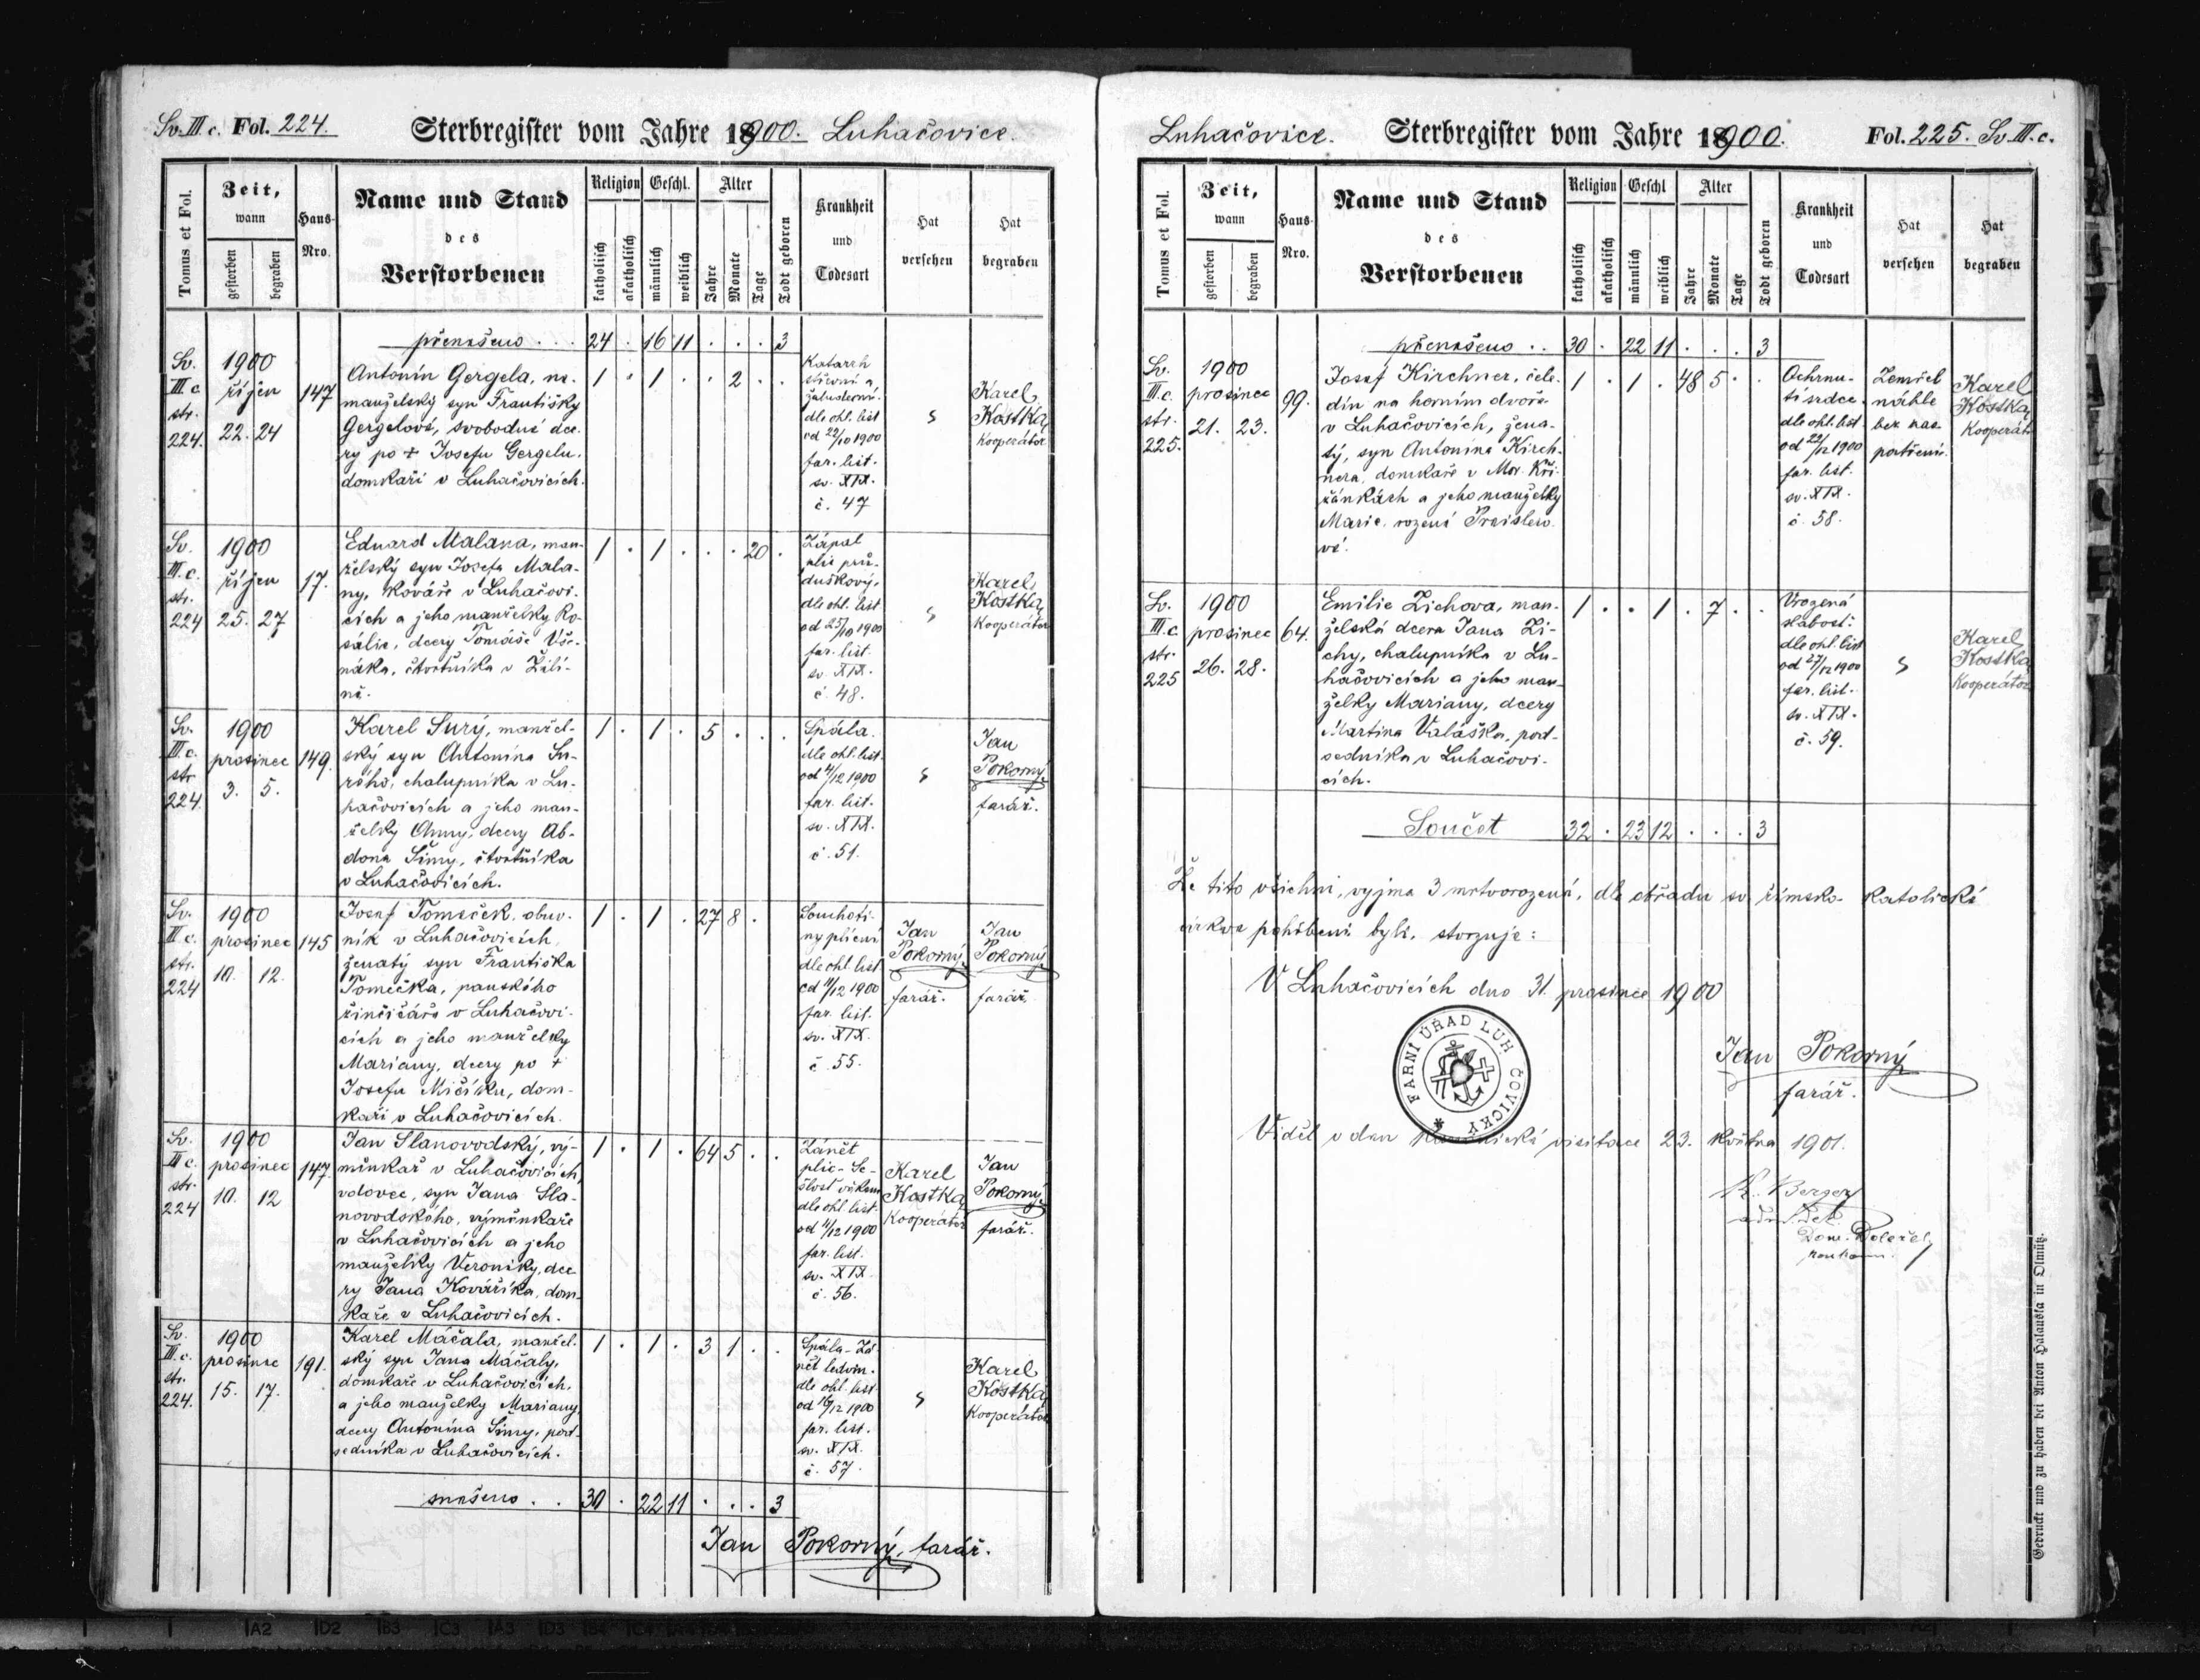 Sv. III. c. Fol. 224. Sterbregister vom Jahre 1900. Luhačovice.
Tomus et Fol.
Zeit, wann
gestorben
begraben
Haus-Nro.
Name und Stand
des
Verstorbenen
Religion
katholisch
akatholisch
Geschl.
männlich
weiblich
Alter
Jahre
Monate
Tage
Todt geboren
Krankheit
und
Todesart
Hat
versehen
Hat
begraben
přenešeno . . . 24 . 16 11 . . . 3
Sv.
III c
str.
224.
1900
říjen
22. 24
147
Antonín Gergela, ne-
manželský syn Františky
Gergelové, svobodné dce-
ry po + Josefu Gergelu,
domkáři v Luhačovicích.
1 . 1 . . 2 . .
Katarrh
dle ohl. list
od 22/10 1900
far. list.
sv. XIX.
č. 47
Karel
Kostka
Kooperátor
Sv.
III. c.
str.
224
1900
říjen
25. 27
17.
Eduard Malana, man-
želský syn Josefa Mala-
ny, kováře v Luhačovi-
cích a jeho manželky Ro-
salie, dcery Tomáše Vše-
náka, čtvrtníka v Želi-
ně.
1 . 1 . . . 20 .
Zápal
plic prů-
duškový,
dle ohl. list
od 25/10 1900
far. list.
sv. XIX.
č. 48.
Karel
Kostka
Kooperátor
Sv.
III. c.
str
224.
1900
prosinec
3. 5.
149.
Karel Surý, manžel-
ský syn Antonína Su-
rého, chalupníka v Lu-
hačovicích a jeho man-
želky Anny, dcery Ab-
dona Šimy, čtvrtníka
v Luhačovicích.
1 . 1 . 5 . . .
Spála.
dle ohl. list.
od 4/12 1900
far. list.
sv. XIX.
č. 51.
Jan
Pokorný
farář.
Sv.
III c.
str.
224
1900
prosinec
10. 12.
145
Josef Tomeček, obuv-
ník v Luhačovicích,
ženatý syn Františka
Tomečka, panského
v Luhačovi-
cích a jeho manželky
Mariany, dcery po +
Josefu Mičíku, dom-
káři v Luhačovicích.
1 . 1 . 27 8 .
Souchoti-
ny plicní
dle ohl. list
od 11/12 1900
far. list.
sv. XIX.
č. 55.
Jan
Pokorný
farář.
Jan
Pokorný
farář.
Sv.
III c.
str.
224
1900
prosinec
10. 12
147.
Jan Slanovodský, vý-
měnkář v Luhačovicích,
vdovec, syn Jana Sla-
novodského, výměnkáře
v Luhačovicích a jeho
manželky Veroniky, dce-
ry Jana Kovaříka, dom-
káře v Luhačovicích.
1 . 1 . 64 5 . .
Zánět
plic - Se-
šlost věkem
dle ohl. list.
od 11/12 1900
far. list.
sv. XIX.
č. 56.
Karel
Kostka
Kooperátor
Jan
Pokorný
farář.
Sv.
III. c.
str.
224.
1900
prosinec
15. 17.
191.
Karel Máčala, manžel-
ský syn Jana Máčaly,
domkáře v Luhačovicích,
a jeho manželky Mariany,
dcery Antonína Šimy, pod-
sedníka v Luhačovicích.
1 . 1 . 3 1 . .
Spála - Zá-
nět ledvin.
dle ohl. list.
od 16/12 1900
far. list.
sv. XIX.
č. 57.
Karel
Kostka
Kooperátor
snešeno . . 30 . 22 11 . . . 3
Jan Pokorný, farář.
Luhačovice. Sterbregister vom Jahre 1900. Fol. 225. Sv. III. c.
Tomus et Fol.
Zeit, wann
gestorben
begraben
Haus-Nro.
Name und Stand
des
Verstorbenen
Religion
katholisch
akatholisch
Geschl
männlich
weiblich
Alter
Jahre
Monate
Tage
Todt geboren
Krankheit
und
Todesart
Hat
versehen
Hat
begraben
přenešeno . . 30 . 22 11 . . . 3
Sv.
III. c.
str.
225.
1900
prosinec
21. 23.
99.
Josef Kirchner, čele-
dín na horním dvoře
v Luhačovicích, žena-
tý, syn Antonína Kirch-
nera, domkáře v Mor. Kři-
žánkách a jeho manželky
Marie, rozené Preislero-
vé.
1 . 1 . 48 5 . .
Ochrnu-
tí srdce.
dle ohl. list.
od 22/12 1900
far. list.
sv. XIX.
č. 58.
Zemřel
náhle
bez zao-
patření.
Karel
Kostka
Kooperát.
Sv.
III. c.
str.
225
1900
prosinec
26. 28.
64.
Emilie Zichova, man-
želská dcera Jana Zi-
chy, chalupníka v Lu-
hačovicích a jeho man-
želky Mariany, dcery
Martina Valáška, pod-
sedníka v Luhačovi-
cích.
1 . . 1 . 7 . .
Vrozená
slabost.
dle ohl. list
od 27/12 1900
far. list.
sv. XIX.
č. 59.
Karel
Kostka
Kooperátor
Součet 32 . 23 12 . . . 3
Že tito všichni, vyjma 3 mrtvorozené, dle obřadu sv. římsko-katolické
církve pohřbeni byli, stvrzuje:
V Luhačovicích dne 31. prosince 1900
FARNÍ ÚŘAD LUHAČOVICKÝ
Jan Pokorný
farář.
Viděl v den kanonické visitace 23. května 1901.
R. Berger
Dom. Doležel
Gedruckt und zu haben bei Anton Halauska in Olmütz.